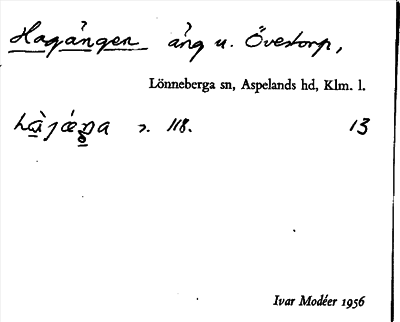 Hagängen äng u. Övestorp,
Lönneberga sn, Aspelands hd, Klm. l.
s. 118. 13
Ivar Modéer 1956